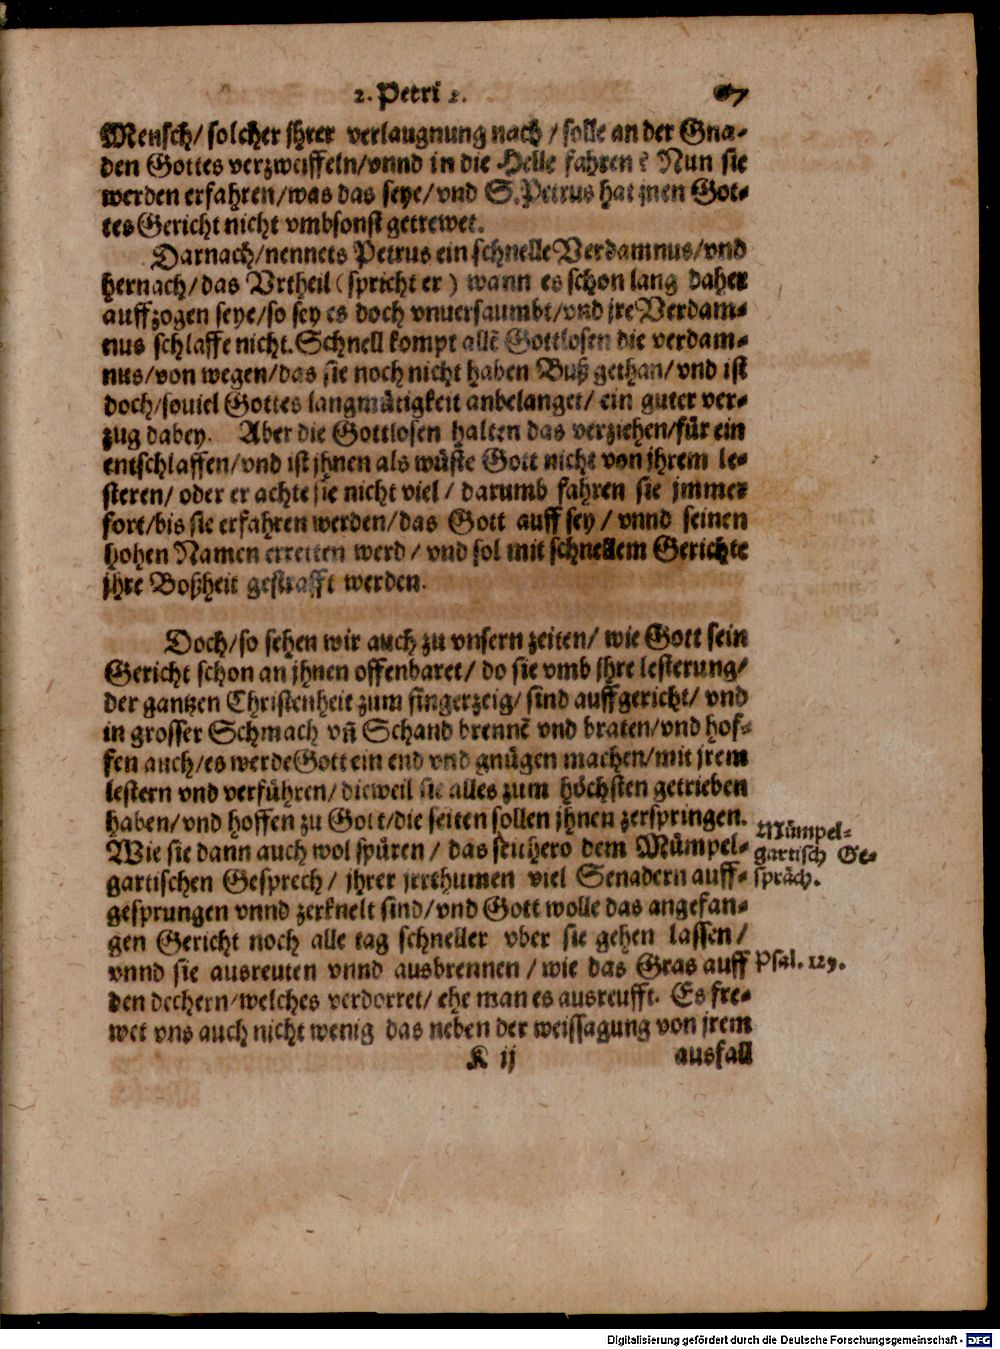 2. Petri 2. 67
Mensch/ solcher jhrer verlaugnung nach / solle an der Gna-
den Gottes verzweiffeln/vnnd in die Helle fahren? Nun sie
werden erfahren/was das seye/ vnd S. Petrus hat jnen Got-
tes Gericht nicht vmbsonst getrewet.
Darnach/nennets Petrus ein schnelle Verdamnus/vnd
hernach/das Vrtheil (spricht er) wann es schon lang daher
auffzogen seye/so sey es doch vnuersaumbt/vnd jre Verdam-
nus schlaffe nicht. Schnell kompt allē Gottlosen die verdam-
nus/von wegen/das sie noch nicht haben Buß gethan/vnd ist
doch/souiel Gottes langmütigkeit anbelanget/ ein guter ver-
zug dabey. Aber die Gottlosen halten das verziehen/für ein
entschlaffen/vnd ist jhnen als wüste Gott nicht von jhrem le-
steren/ oder er achte sie nicht viel / darumb fahren sie jmmer
fort/bis sie erfahren werden/das Gott auff sey / vnnd seinen
hohen Namen erretten werd / vnd sol mit schnellem Gerichte
jhre Boßheit gestrafft werden.
Doch/so sehen wir auch zu vnsern zeiten/ wie Gott sein
Gericht schon an jhnen offenbaret/ do sie vmb jhre lesterung/
der gantzen Christenheit zum fingerzeig/ sind auffgericht/ vnd
in grosser Schmach vñ Schand brennē vnd braten/vnd hof-
fen auch/es werde Gott ein end vnd gnügen machen/mit jrem
lestern vnd verführen/ dieweil sie alles zum höchsten getrieben
haben/vnd hoffen zu Gott/die seiten sollen jhnen zerspringen.
Wie sie dann auch wol spüren / das seithero dem Mümpel-
gartischen Gesprech/ jhrer jrrthumen viel Senadern auff-
gesprungen vnnd zerknelt sind/vnd Gott wolle das angefan-
gen Gericht noch alle tag schneller vber sie gehen lassen/
vnnd sie ausreuten vnnd ausbrennen / wie das Gras auff
den dechern/welches verdorret/ ehe man es ausreufft. Es fre-
wet vns auch nicht wenig das neben der weissagung von jrem
K ij ausfall
Mümpel-
gartisch Ge-
spräch.
Psal. 129.
Digitalisierung gefördert durch die Deutsche Forschungsgemeinschaft - DFG